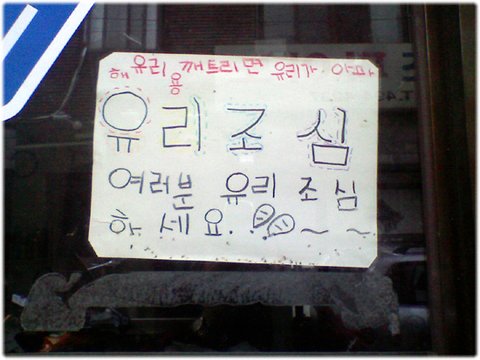 유리 깨트리면 유리가 아파
해용
유리조심
여러분 유리 조심
하세요.~~